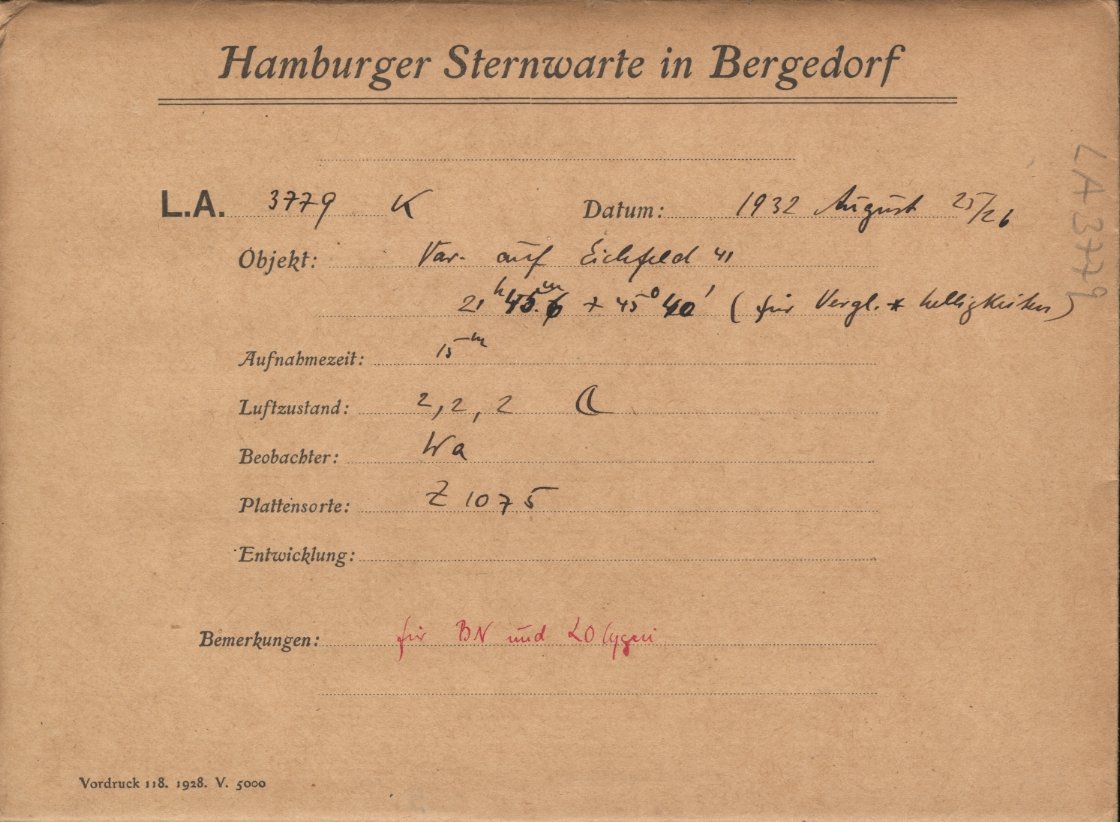 Hamburger Sternwarte in Bergedorf
L.A. 3779 K Datum: 1932 August 25/26
Objekt: Var. auf Eichfeld 41
21ʰ 45ᵐ.6 + 45° 40' (für Vergl. * helligkeiten)
Aufnahmezeit: 15ᵐ
Luftzustand: 2, 2, 2 ☾
Beobachter: Wa
Plattensorte: Z 1075
Entwicklung:
Bemerkungen: für BN und LO Cygni
Vordruck 118. 1928. V. 5000
LA 3779